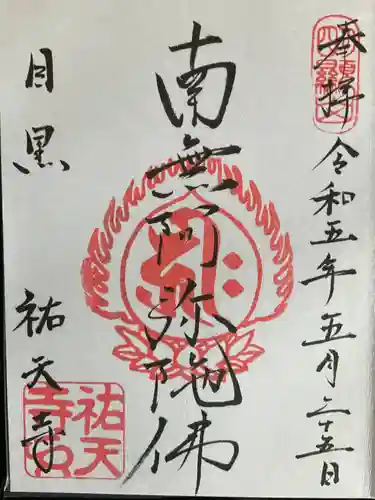 奉拝
令和五年五月二十五日
南無阿弥陀佛
目黒
祐天寺
祐天
寺